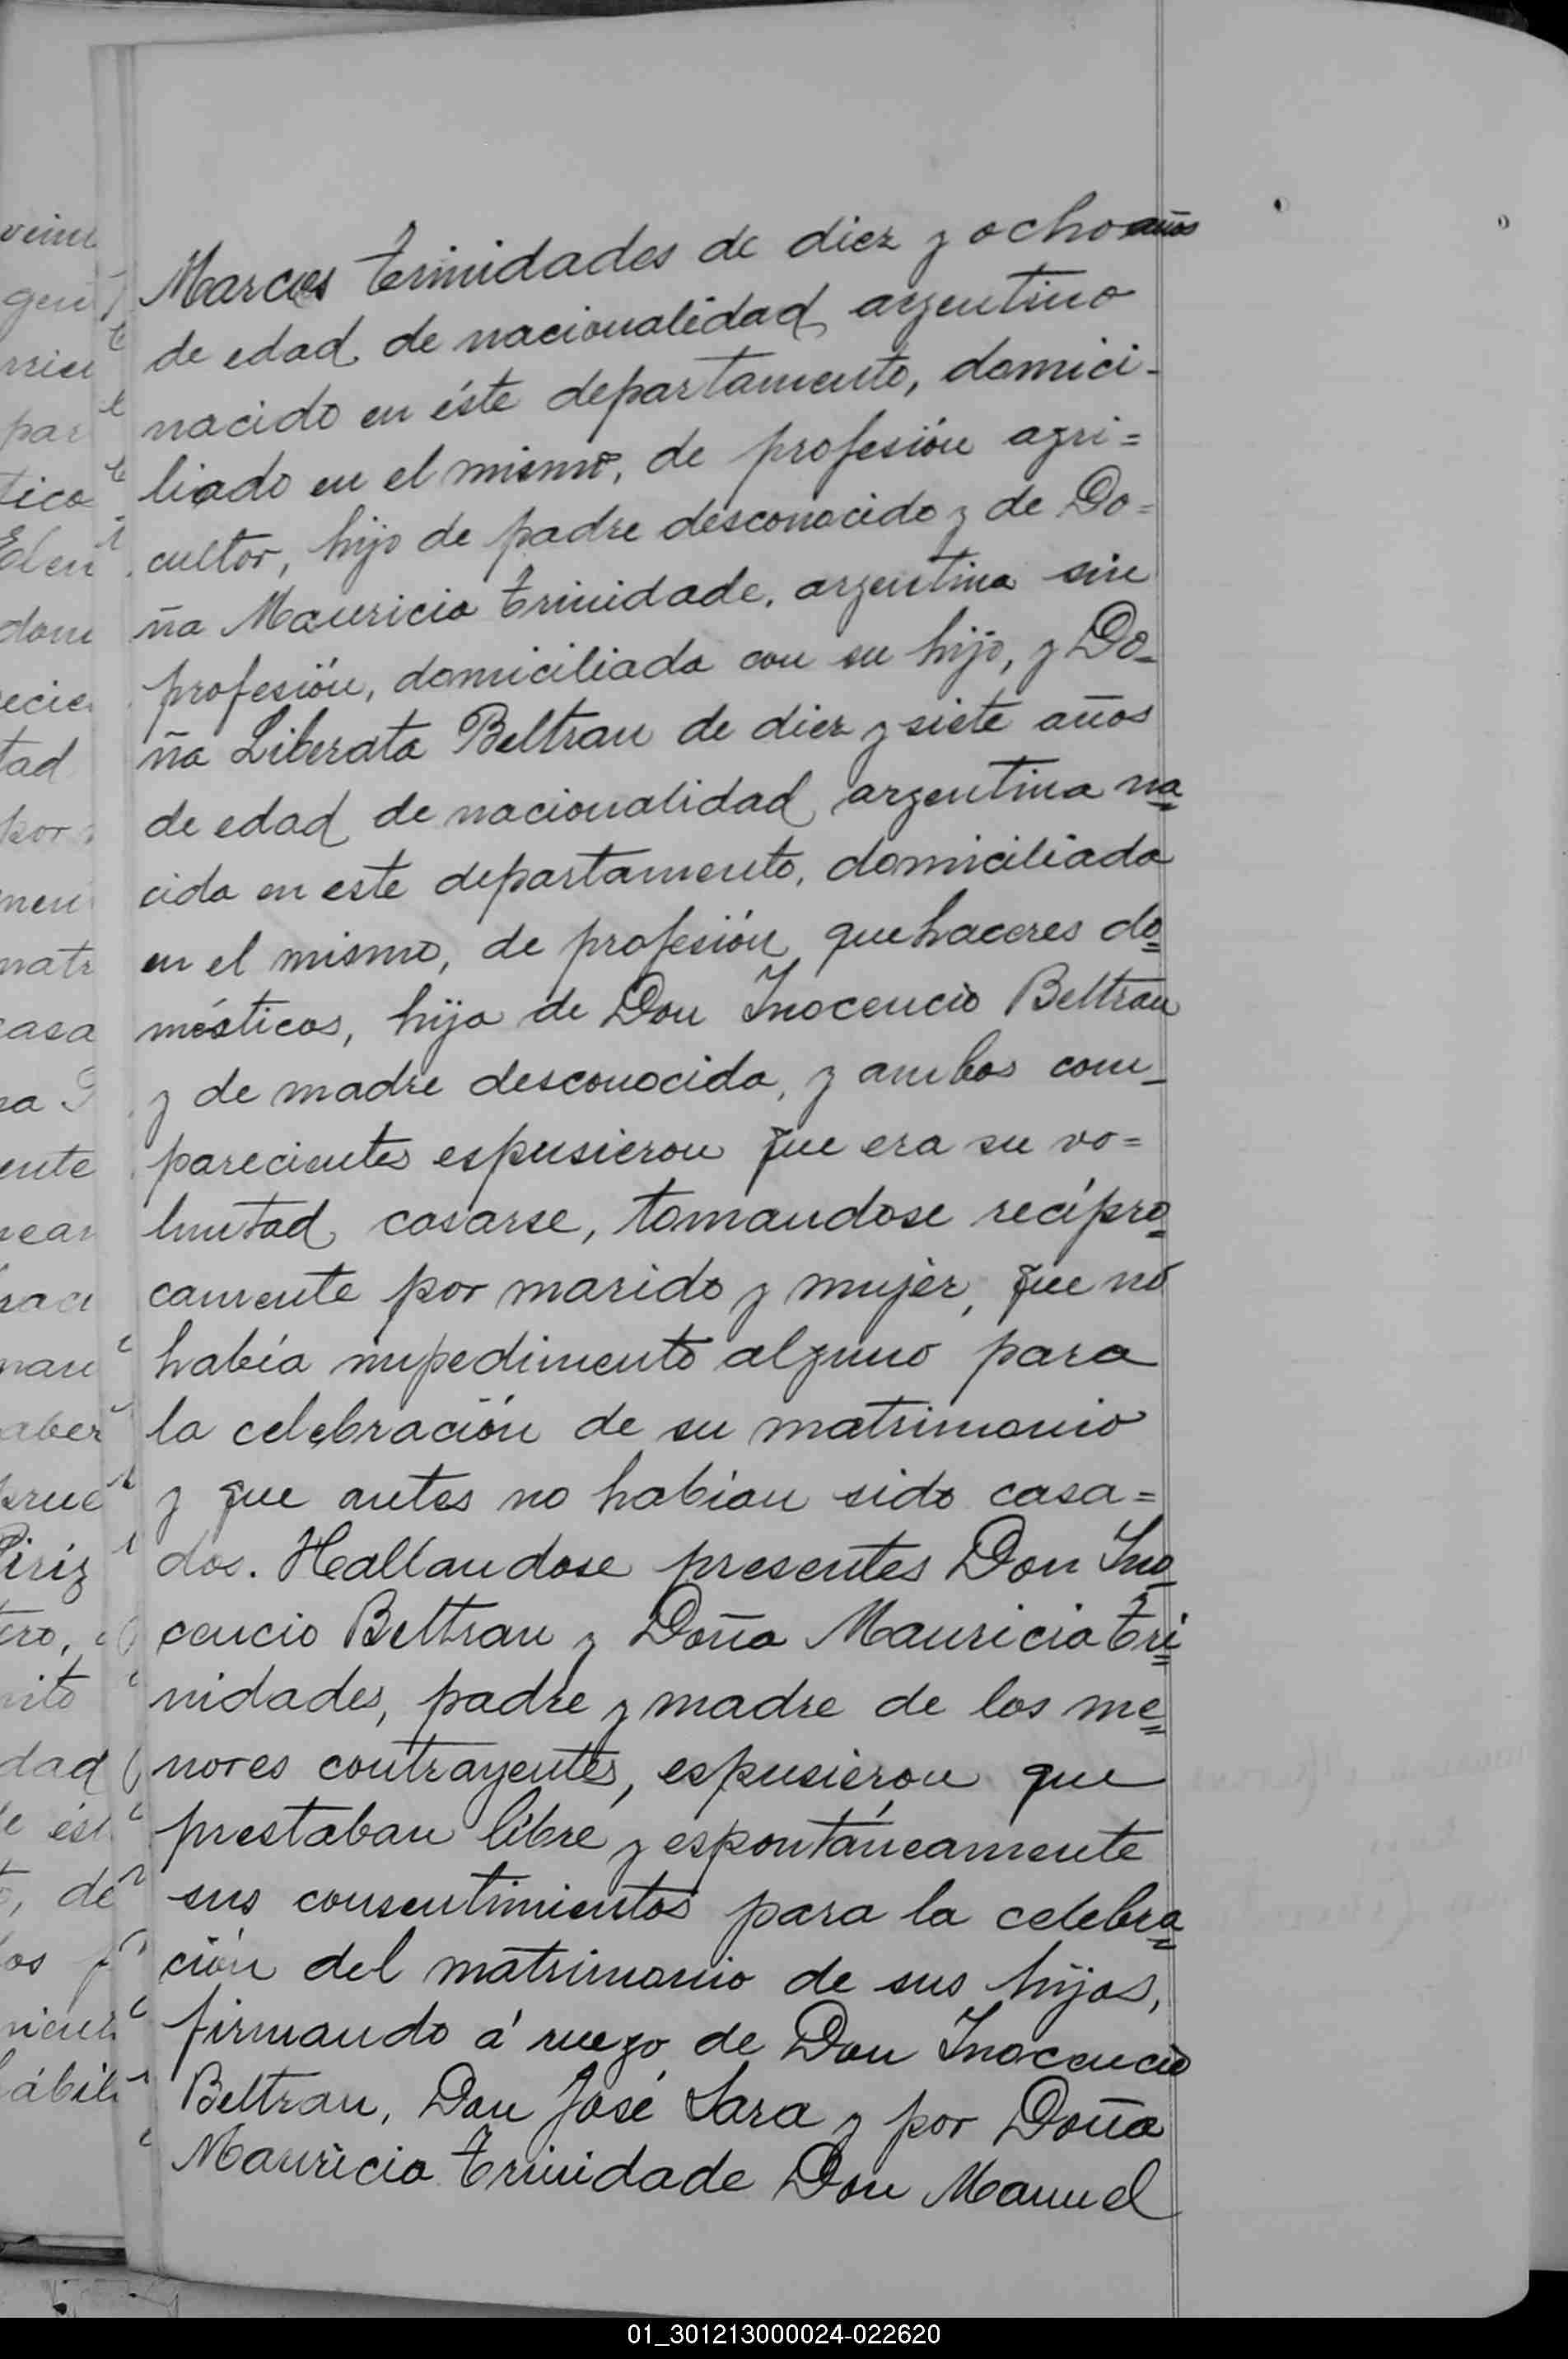 Marcos Trinidades de diez y ocho años
de edad de nacionalidad argentino
nacido en éste departamento, domici-
liado en el mismo, de profesión agri=
cultor, hijo de padre desconocido y de Do=
ña Mauricia Trinidade, argentina sin
profesión, domiciliada con su hijo, y Do-
ña Liberata Beltran de diez y siete años
de edad de nacionalidad argentina na=
cida en este departamento, domiciliada
en el mismo, de profesión quehaceres do=
mésticos, hija de Don Inocencio Beltran
y de madre desconocida, y ambos com-
parecientes espusieron que era su vo=
luntad casarse, tomandose recípro=
camente por marido y mujer, que no
había impedimento alguno para
la celebración de su matrimonio
y que antes no habian sido casa=
dos. Hallandose presentes Don Ino-
cencio Beltran y Doña Mauricia Tri=
nidades, padre y madre de los me=
nores contrayentes, espusieron que
prestaban libre y espontáneamente
sus consentimientos para la celebra=
ción del matrimonio de sus hijos,
firmando á ruego de Don Inocencio
Beltran, Don José Lara y por Doña
Mauricia Trinidade Don Manuel
01_301213000024-022620